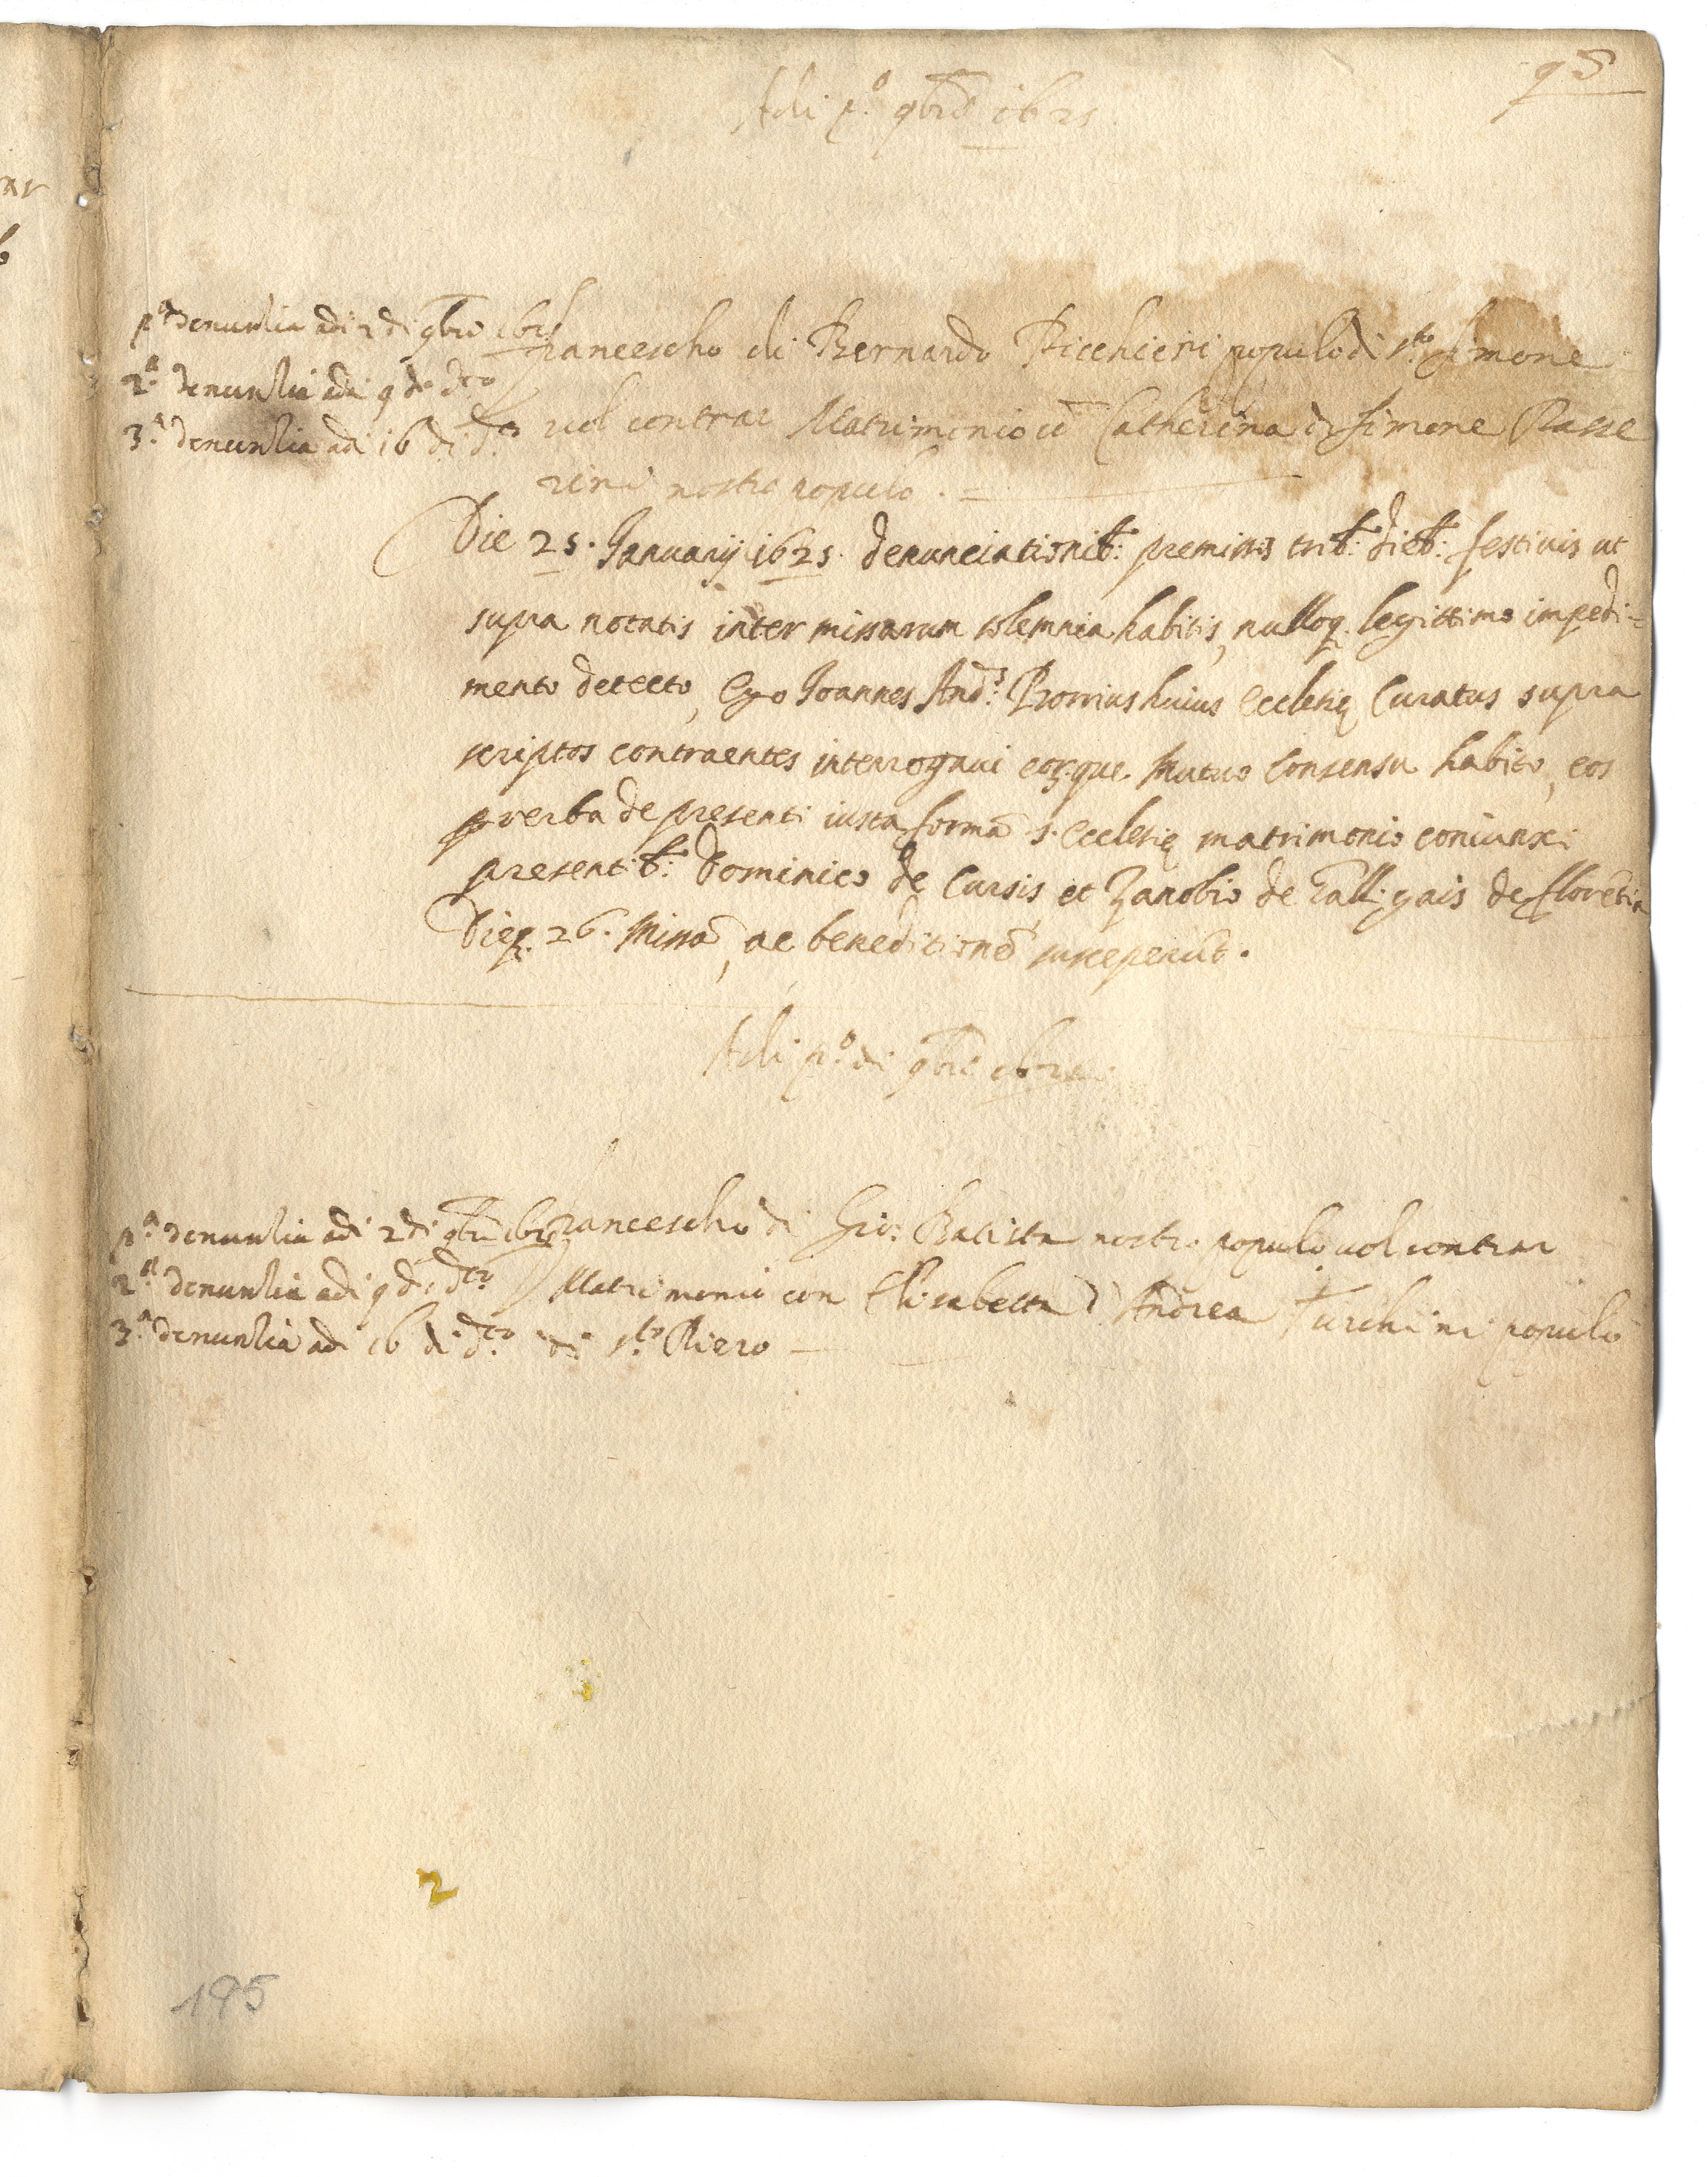 95
Adi p.º 9bre 1625
p.ª denuntia adi 2 di 9bre 1625
2.ª denuntia adi 9 di d.to
3.ª denuntia adi 16 di d.to
Francescho di Bernardo Picchiesi populo di s.to Simone
vol contrar Matrimonio cõ Catherina di Simone Passe
rini nostro populo . =
Die 25. Januarij 1625. denunciationib: premissis trib: dieb: festivis ut
supra notatis inter missarum solemnia habitis, nulloq. legittimo impedi=
mento detecto, Ego Joannes And.s huius Ecclesię Curatus supra
scriptos contraentes interrogaui eorque. mutuo consensu habito, eos
p verba de presenti iusta formã s. Ecclesię matrimonio coniunxi
presentib: Dominico de Cursis, et Zanobio de Galligais de florẽtia
Dieq. 26. Missã, ac beneditionẽ susceperũt.
Adi p.º di 9bre
p.ª denuntia adi 2 di 9bre
2.ª denuntia adi 9 di d.to
3.ª denuntia adi 16 di d.to
Francescho di Gio: Batista nostro populo vol contrar
Matrimonio con Elisabetta d Andrea Turchini populo
di s.to Piero
2
195